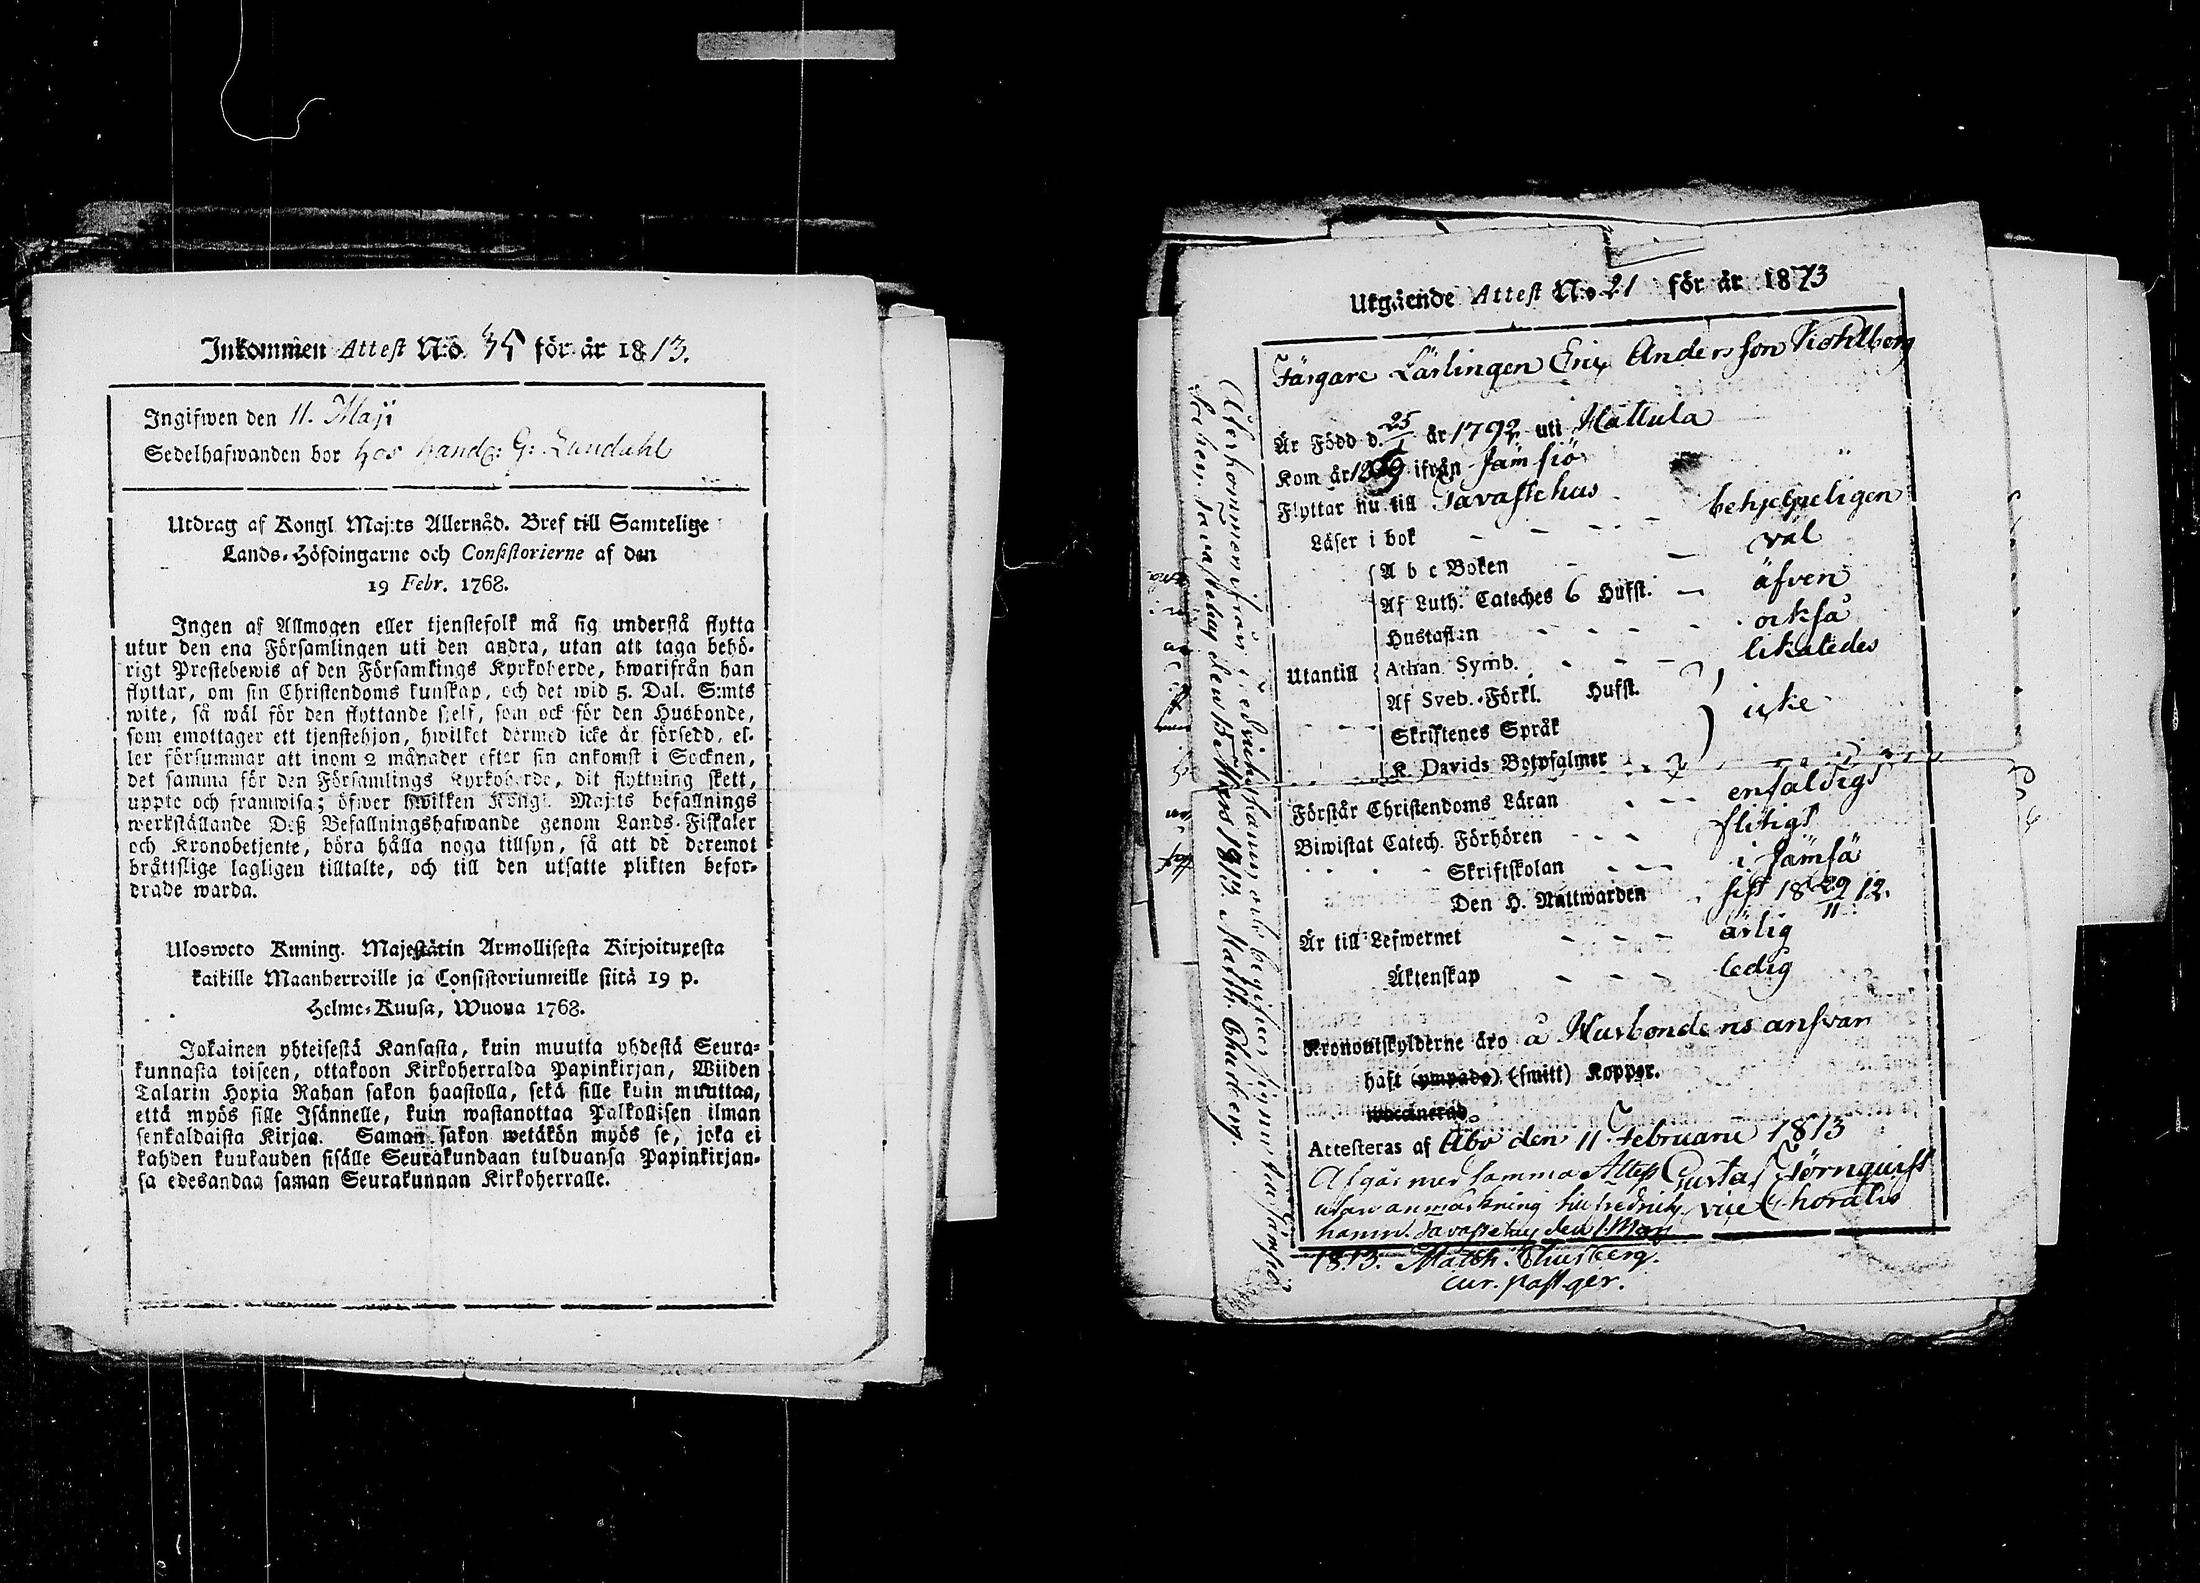 Inkommen Attest N:o 35 för år 1813.
Ingifwen den 11. Maji
Sedelhafwanden bor hos handl: G: Lundahl
Utdrag af Kongl Maj:ts Allernåd. Bref till Samtelige
Lands-Höfdingarne och Consistorierne af den
19 Febr. 1768.
Ingen af Allmogen eller tjenstefolk må sig understå flytta
utur den ena Församlingen uti den andra, utan att taga behö-
rigt Prestebewis af den Församlings Kyrkoherde, hwarifrån han
flyttar, om sin Christendoms kunskap, och det wid 5. Dal. S:mts
wite, så wäl för den flyttande sjelf, som ock för den Husbonde,
som emottager ett tjenstehjon, hwilket dermed icke är försedd, el-
ler försummar att inom 2 månader efter sin ankomst i Socknen,
det samma för den Församlings Kyrkoherde, dit flyttning skett,
uppte och framwisa; öfwer hwilken Kongl. Maj:ts befallnings
werkställande Deß Befallningshafwande genom Lands-Fiskaler
och Kronobetjente, böra hålla noga tillsyn, så att de deremot
bråtislige lagligen tilltalte, och till den utsatte plikten befor-
drade warda.
Ulosweto Kuning. Majestätin Armollisesta Kirjoituxesta
kaikille Maanherroille ja Consistoriumeille siitä 19 p.
Helme-Kuusa, Wuona 1768.
Jokainen yhteisestä Kansasta, kuin muutta yhdestä Seura-
kunnasta toiseen, ottakoon Kirkoherralda Papinkirjan, Wiiden
Talarin Hopia Rahan sakon haastolla, sekä sille kuin muuttaa,
että myös sille Isännelle, kuin wastanottaa Palkollisen ilman
senkaldaista Kirjaa. Saman sakon wetäkön myös se, joka ei
kahden kuukauden sisälle Seurakundaan tulduansa Papinkirjan-
sa edesandaa saman Seurakunnan Kirkoherralle.
Utgående Attest N:o 21 för år 1813
Färgare Lärlingen Eric Andersson
Är Född d. 25/1 år 1792 uti Hattula
Kom år 1809 ifrån Jämsiö
Flyttar nu till Tavastehus
Läser i bok - - - - behjelpeligen
A b c Boken - - väl
Af Luth. Cateches 6 Hufst. - äfven
Hustaflan - - - - också
Utantill Athan. Symb. - - - likaledes
Af Sveb. Förkl. Hufst.
Skriftenes Språk icke
K. Davids Botpsalmer
Förstår Christendoms Läran - - - enfaldigt
Biwistat Catech. Förhören - - - flitigt
Skriftskolan - - - i Jämsä
Den H. Nattwarden sist 18 29/11 12.
Är till Lefwernet - - - ärlig
Äktenskap - - - ledig
Kronoutskylderne äro å Husbondens ansvar
haft (ympade) (smitt) Koppor.
waccinerad
Attesteras af Åbo den 11 Februarii 1813
Gustaf Törnquist
vice Choralis
Afgår med samma Attest
utan anmärkning till Fredrichs
hamn. Tavastehus den 1. Maji
1813. Matth. Thusberg.
cur. past. ger.
Återkommen ifrån Fredrichshamn och begifver sig nu till Jämsiö
Socken. Tavastehus den 1813. Matth. Thusberg.